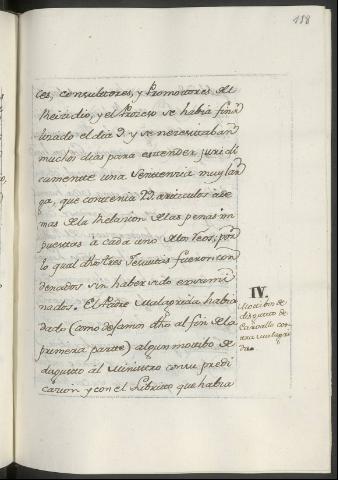 188
ces, consultores, y Promotores del
Reicidio, y el Proceso se habia fina
lizado el dia 9 y se necesitaban
muchos dias para estender juridi
camente una Sentencia muy lar
ga, que contenia 29 articulos ade
mas de la Relacion de las penas im
puestas a cada uno de los Reos, por
lo qual dhos tres Jesuitas fueron con
denados sin haber sido exsami
nados. El Padre Malagrida habia
dado (como dejamos dho al fin de la
primera parte) algun motibo de
disgusto al Ministro con su predi
cacion y con el Librito que habia
IV.
Motibos de
disgusto de
Carvallo con
tra Malagri
da.